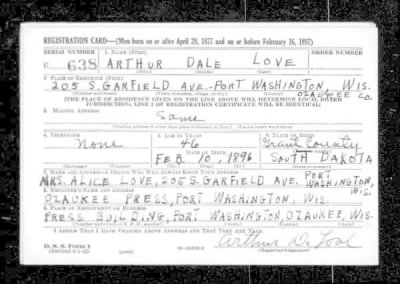 REGISTRATION CARD—(Men born on or after April 28, 1877 and on or before February 16, 1897)
SERIAL NUMBER 1. NAME (Print) ORDER NUMBER
U 638 ARTHUR DALE LOVE
2. PLACE OF RESIDENCE (Print)
205 S. GARFIELD AVE. PORT WASHINGTON, WIS.
OZAUKEE CO.
[THE PLACE OF RESIDENCE GIVEN ON THE LINE ABOVE WILL DETERMINE LOCAL BOARD
JURISDICTION; LINE 2 OF REGISTRATION CERTIFICATE WILL BE IDENTICAL]
3. MAILING ADDRESS
Same
[Mailing address if other than place indicated on line 2. If same insert word same]
4. TELEPHONE 5. AGE IN YEARS 6. PLACE OF BIRTH
None 46 Grant County
DATE OF BIRTH
FEB. 10, 1896 SOUTH DAKOTA
7. NAME AND ADDRESS OF PERSON WHO WILL ALWAYS KNOW YOUR ADDRESS
MRS. ALICE LOVE, 205 S. GARFIELD AVE. PORT WASHINGTON, WIS.
8. EMPLOYER'S NAME AND ADDRESS
OZAUKEE PRESS, PORT WASHINGTON, WIS.
9. PLACE OF EMPLOYMENT OR BUSINESS
PRESS BUILDING, PORT WASHINGTON, OZAUKEE, WIS.
I AFFIRM THAT I HAVE VERIFIED ABOVE ANSWERS AND THAT THEY ARE TRUE.
D. S. S. Form 1
(Revised 4-1-42)
Arthur D. Love
(Registrant's signature)